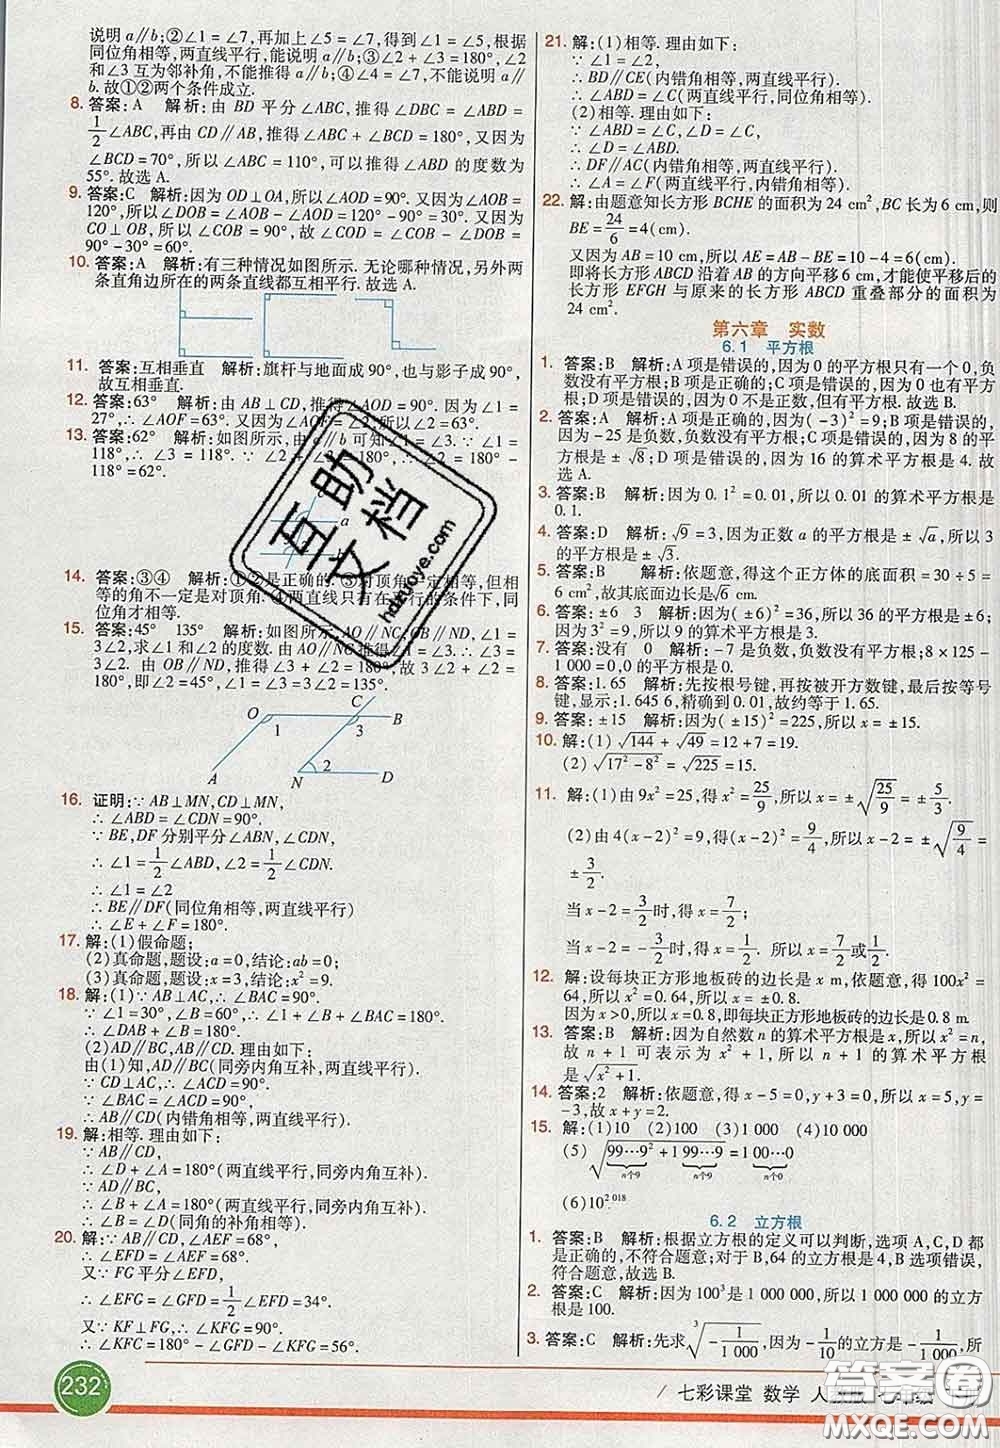 说明 a∥b;②∠1=∠7,再加上∠5=∠7,得到∠1=∠5,根据
同位角相等,两直线平行,能说明 a∥b;③∠2+∠3=180°,∠2
和∠3 互为邻补角,不能推得 a∥b;④∠4=∠7,不能说明
a∥b.故①②两个条件成立.
8. 答案:A 解析:由 BD 平分∠ABC,推得∠DBC=∠ABD=
1/2∠ABC,再由 CD∥AB,推得∠ABC+∠BCD=180°,又因为
∠BCD=70°,所以∠ABC=110°,所以可推得∠ABD 的度数为
55°.故选 A.
9. 答案:C 解析:因为 OD⊥OA,所以∠AOD=90°.又因为∠AOB=
120°,所以∠DOB=∠AOB-∠AOD=120°-90°=30°.又因为
CO⊥OB,所以∠COB=90°,所以∠COD=∠COB-∠DOB=
90°-30°=60°.
10. 答案:A 解析:有三种情况如图所示.无论哪种情况,另外两
条直角边所在的两条直线都互相平行.故选 A.
11. 答案:互相垂直 解析:旗杆与地面成90°,也与影子成90°,
故互相垂直.
12. 答案:63° 解析:由 AB⊥CD,推得∠AOC=90°.又因为∠1=
27°,∠AOF=63°.又因为∠AOF=∠2,所以∠2=63°.
13. 答案:62° 解析:如图所示,由 a∥b 可知∠1=∠3.因为∠1=
118°,∠3=118°.
118°=62°.
a
14. 答案:③④ 解析:①②是正确的.③对顶角一定相等,但相
等的角不一定是对顶角.④两直线只有在平行的条件下,同
位角才相等.
15. 答案:45° 135° 解析:如图所示,AO∥NC,OB∥ND,∠1=
3∠2,求∠1和∠2的度数.由 AO∥NC 推得∠1=∠3,所以∠3=
3∠2.由 OB∥ND,推得∠2+∠3=180°.故 3∠2+∠2=
180°,即∠2=45°,∠1=∠3=135°.
C
O B
1 3
2
A N D
16. 证明:∵AB⊥MN,CD⊥MN,
∴∠ABD=∠CDN=90°.
∵BE,DF 分别平分∠ABN,∠CDN,
∴∠1=1/2∠ABD,∠2=1/2∠CDN.
∴∠1=∠2
∴BE∥DF(同位角相等,两直线平行)
∴∠E+∠F=180°.
17. 解:(1)假命题;
(2)真命题,题设:a=0,结论:ab=0;
(3)真命题,题设:x=3,结论:x²=9.
18. 解:(1)∵AB⊥AC,∴∠BAC=90°.
∵∠1=30°,∠B=60°,∴∠1+∠B+∠BAC=180°.
∴∠DAB+∠B=180°.
(2)AD∥BC,AB∥CD.理由如下:
由(1)知,AD∥BC(同旁内角互补,两直线平行).
∵CD⊥AC,∴∠ACD=90°.
∵∠BAC=∠ACD=90°,
∴AB∥CD(内错角相等,两直线平行).
19. 解:相等.理由如下:
∵AB∥CD,
∴∠D+∠A=180°(两直线平行,同旁内角互补).
∵AD∥BC,
∴∠B+∠A=180°(两直线平行,同旁内角互补).
∴∠B=∠D(同角的补角相等).
20. 解:∵AB∥CD,∠AEF=68°,
∴∠EFD=∠AEF=68°.
又∵FG 平分∠EFD,
∴∠EFG=∠GFD=1/2∠EFD=34°.
又∵KF⊥FG,∴∠KFG=90°.
∴∠KFC=180°-∠GFD-∠KFG=56°.
21. 解:(1)相等.理由如下:
∵∠1=∠2,
∴BD∥CE(内错角相等,两直线平行).
∴∠ABD=∠C(两直线平行,同位角相等).
(2)相等.理由如下:
∵∠ABD=∠C,∠D=∠C,
∴∠D=∠ABD.
∴DF∥AC(内错角相等,两直线平行).
∴∠A=∠F(两直线平行,内错角相等).
22. 解:由题意知长方形 BCHE 的面积为24 cm²,BC 长为6 cm,则
BE=24/6=4(cm).
又因为 AB=10 cm,所以 AE=AB-BE=10-4=6(cm).
即将长方形 ABCD 沿着 AB 的方向平移6 cm,才能使平移后的
长方形 EFGH 与原来的长方形 ABCD 重叠部分的面积为
24 cm².
第六章 实数
6.1 平方根
1. 答案:B 解析:A 项是错误的,因为0的平方根只有一个0,负
数没有平方根;B 项是正确的;C 项是错误的,因为负数没有平方
根;D 项是错误的,因为0不是正数,但有平方根.故选 B.
2. 答案:A 解析:A 项是正确的,因为(-3)²=9;B 项是错误的,
因为-25是负数,负数没有平方根;C 项是错误的,因为8的平
方根是±√8;D 项是错误的,因为16的算术平方根是4.故
选 A.
3. 答案:B 解析:因为0.1²=0.01,所以0.01的算术平方根是
0.1.
4. 答案:D 解析:√9=3,因为正数 a 的平方根是±√a,所以√9
的平方根是±√3.
5. 答案:B 解析:依题意,得这个正方体的底面积是30÷5=
6 cm²,故其底面边长是√6 cm.
6. 答案:±6 3 解析:因为(±6)²=36,所以36的平方根是
±6.因为3²=9,所以9的算术平方根是3.
7. 答案:没有 0 解析:-7是负数,负数没有平方根;8×125-
1 000=0,0的平方根是0.
8. 答案:1.65 解析:先按根号键,再按被开方数键,最后按等号
键,显示:1.645 6,精确到0.01,故约等于1.65.
9. 答案:±15 解析:因为(±15)²=225,所以 x=±15.
10. 解:(1)√144+√49=12+7=19.
(2)√(17²-8²)=√225=15.
11. 解:(1)由9x²=25,得 x²=25/9,所以 x=±√(25/9)=±5/3.
(2)由4(x-2)²=9,得(x-2)²=9/4,所以 x-2=±√(9/4)=
±3/2.
当 x-2=3/2时,得 x=7/2;
当 x-2=-3/2时,得 x=1/2. 所以 x=7/2或1/2.
12. 解:设每块正方形地板砖的边长是 x m,依题意,得100x²=
64,所以 x²=0.64,所以 x=±0.8.
因为 x>0,所以 x=0.8,即每块正方形地板砖的边长是0.8 m.
13. 答案:B 解析:因为自然数 n 的算术平方根是 x,所以 x²=n,
故 n+1 可表示为 x²+1,所以 n+1 的算术平方根
是√(x²+1).
14. 答案:2 解析:依题意,得 x-5=0,y+3=0,所以 x=5,y=
-3,故 x+y=2.
15. 解:(1)10 (2)100 (3)1 000 (4)10 000
(5)√(99…9²+1 99…9)=1 00…0
n个9 n个9 n个0
(6)10^2 018
6.2 立方根
1. 答案:B 解析:根据立方根的定义可以判断,选项 A,C,D 都
是正确的,不符合题意;对于 B,64的立方根是4,B 选项错误,
符合题意,故选 B.
2. 答案:C 解析:因为100³是1 000 000,所以1 000 000的立方
根是100.
3. 答案:C 解析:先求³√(-1/1 000),因为-1/10的立方是-1/1 000,所
232
七彩课堂 数学 人教版 七年级
互助文档
hdzuoye.com
答案圈
MXQE.COM